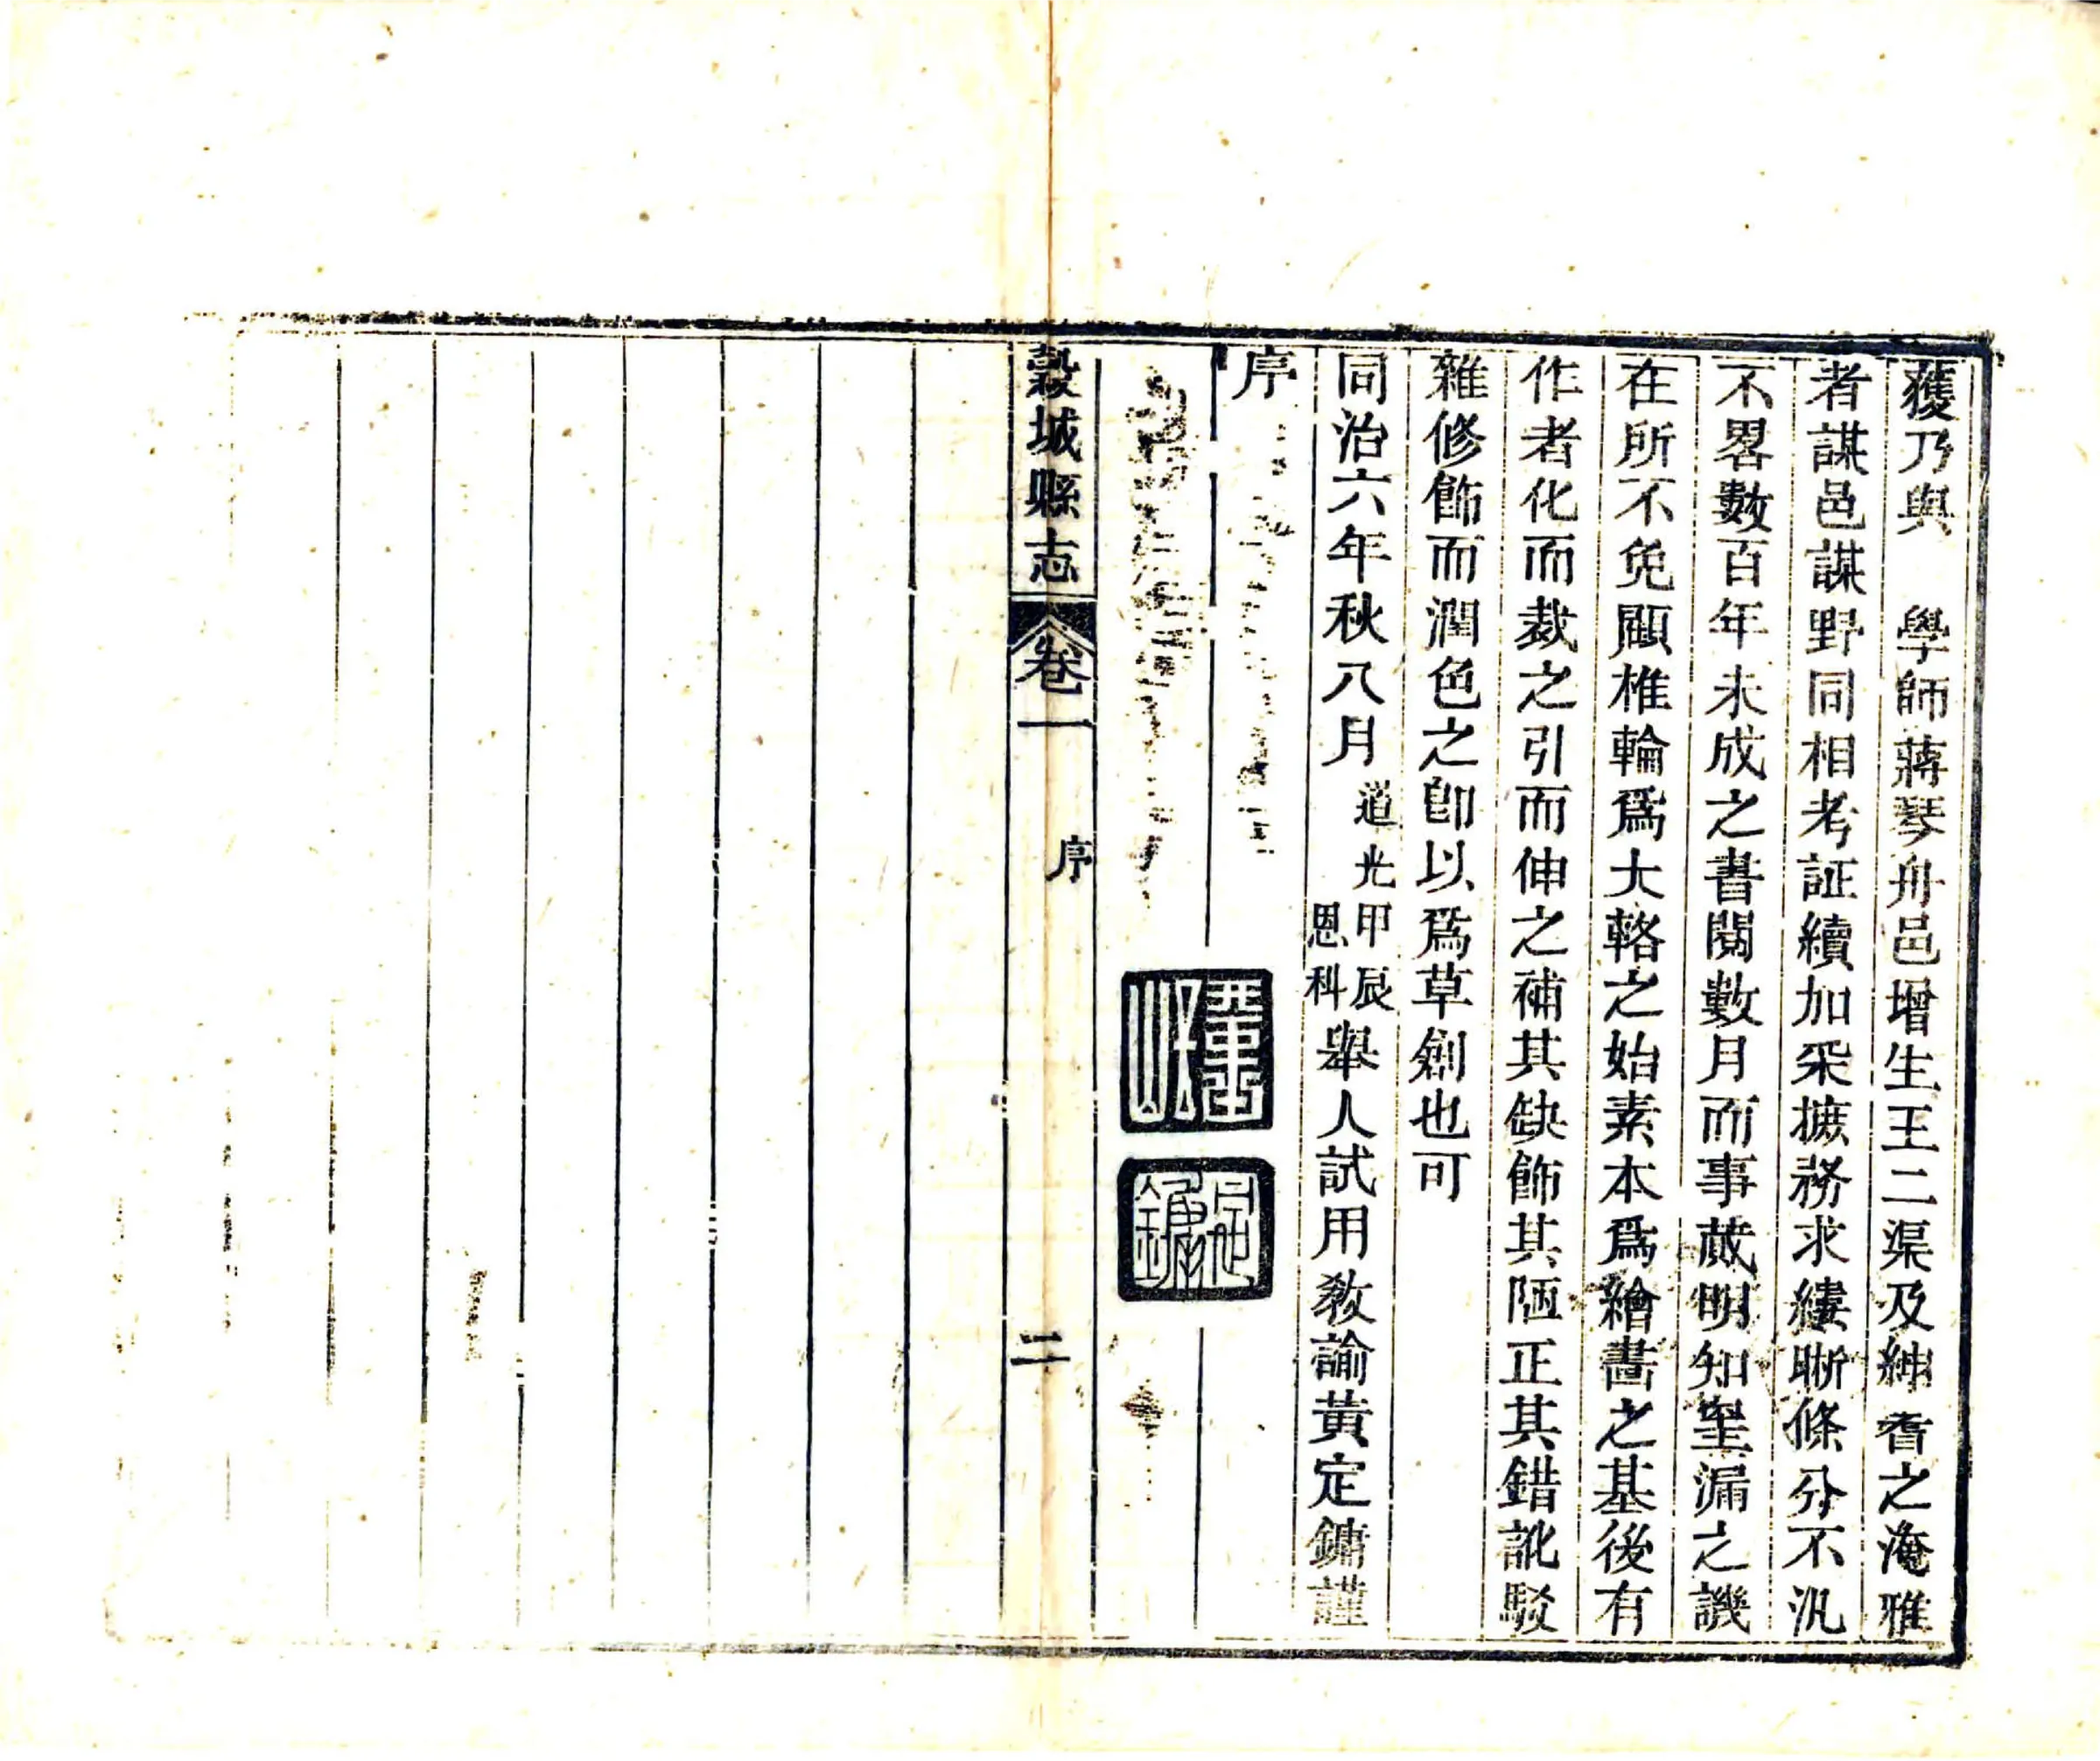 獲乃與　學師蔣琴舟邑增生王二渠及紳耆之淹雅
者謀邑謀野同相考証續加采摭務求縷晰條分不汎
不畧數百年未成之書閱數月而事蕆明知罣漏之譏
在所不免顧椎輪爲大輅之始素本爲繪畵之基後有
作者化而裁之引而伸之補其缺飾其陋正其錯訛駁
雜修飾而潤色之卽以爲草創也可
同治六年秋八月道光甲辰恩科舉人試用教諭黃定鏞謹
序
穀城縣志　卷一　序　二